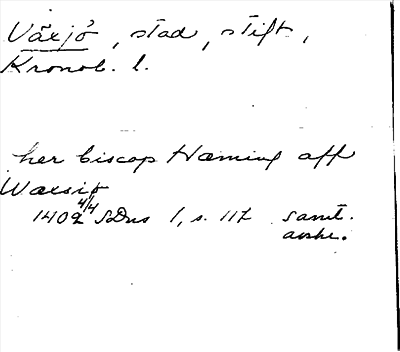 Växjö, stad, stift,
Kronob. l.
her biscop Heming aff
Waxsiø
1402 4/4 SDns 1, s. 117 samt.
avskr.